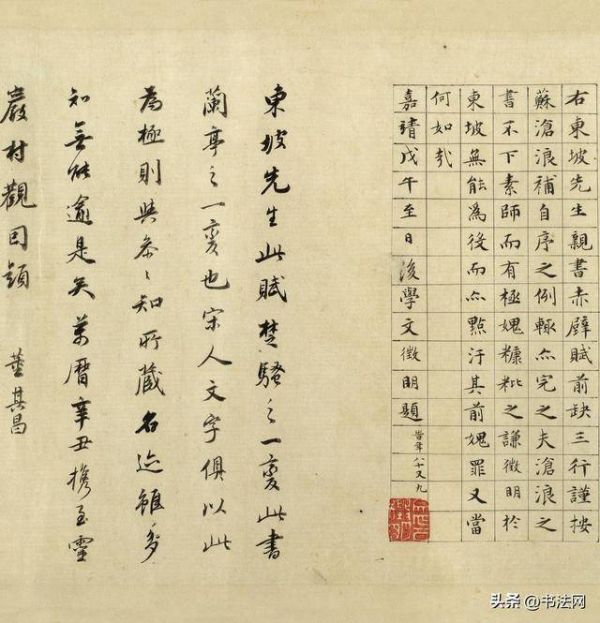 右東坡先生親書赤壁賦前缺三行謹按
蘇滄浪補自序之例輒亦完之夫滄浪之
書不下素師而有極愧糠粃之謙徵明於
東坡無能為役而亦點汙其前愧罪又當
何如哉
嘉靖戊午至日後學文徵明題 時年八十又九
東坡先生此賦楚騷之一變此書
蘭亭之一變也宋人文字俱以此
為極則與參參知所藏名迹雖多
知無能逾是矣萬曆辛丑携至靈
巖村觀因題 董其昌
头条 @书法网